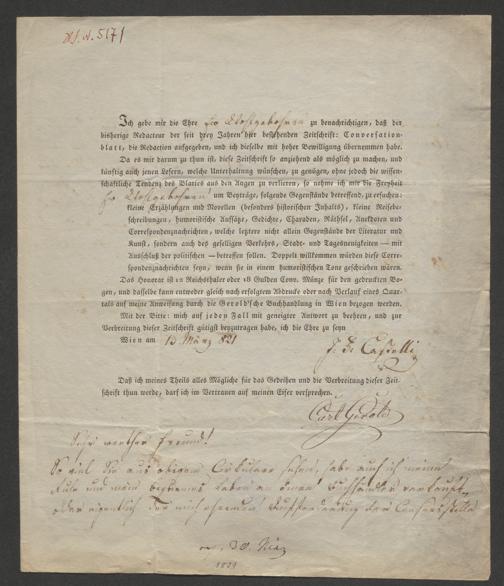 Ich gebe mir die Ehre Euer Wohlgebohren zu benachrichtigen, daß der
bisherige Redacteur der seit drey Jahren hier bestehenden Zeitschrift: Conversation-
blatt, die Redaction aufgegeben, und ich dieselbe mit hoher Bewilligung übernommen habe.
Da es mir darum zu thun ist, diese Zeitschrift so anziehend als möglich zu machen, und
künftig auch jenen Lesern, welche Unterhaltung wünschen, zu genügen, ohne jedoch die wissen-
schaftliche Tendenz des Blattes aus den Augen zu verlieren, so nehme ich mir die Freyheit
Wohlgebohren um Beyträge, folgende Gegenstände betreffend, zu ersuchen:
kleine Erzählungen und Novellen (besonders historischen Inhalts), kleine Reisebe-
schreibungen, humoristische Aufsätze, Gedichte, Charaden, Räthsel, Anekdoten und
Correspondenznachrichten, welche letztere nicht allein Gegenstände der Literatur und
Kunst, sondern auch des geselligen Verkehrs, Stadt- und Tagsneuigkeiten — mit
Ausschluß der politischen — betreffen sollen. Doppelt willkommen würden diese Corre-
spondenznachrichten seyn, wenn sie in einem humoristischen Tone geschrieben wären.
Das Honorar ist 12 Reichsthaler oder 18 Gulden Conv. Münze für den gedruckten Bo-
gen, und dasselbe kann entweder gleich nach erfolgtem Abdrucke oder nach Verlauf eines Quar-
tals auf meine Anweisung durch die Gerold'sche Buchhandlung in Wien bezogen werden.
Mit der Bitte: mich auf jeden Fall mit geneigter Antwort zu beehren, und zur
Verbreitung dieser Zeitschrift gütigst beyzutragen habe, ich die Ehre zu seyn
Wien am 13 März 821
J. F. Castelli
Daß ich meines Theils alles Mögliche für das Gedeihen und die Verbreitung dieser Zeit-
schrift thun werde, darf ich im Vertrauen auf meinen Eifer versprechen.
Carl Gerold
Sehr werther Freund!
So viel Sie aus obigem Circulare sehen, habe auch ich meine
Ruhe und mein Leben an einen Buchhändler verkauft
oder eigentlich
30. März
1821